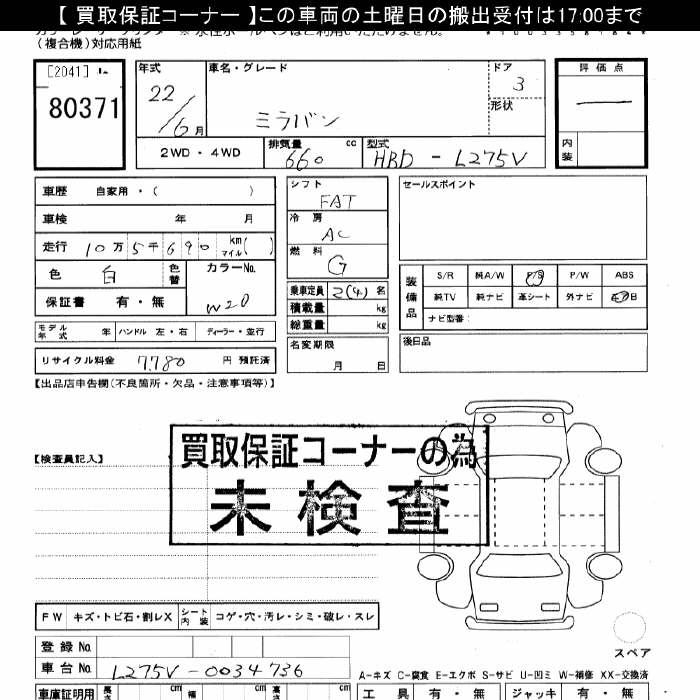 【 買取保証コーナー 】この車両の土曜日の搬出受付は17:00まで
(複合機)対応用紙
[2041]
80371
年式
22/6月
車名・グレード
ミラバン
ドア
3
形状
評価点
—
内装
2WD・4WD
排気量 660 cc
型式 HBD - L275V
車歴 自家用・( )
車検 年 月
走行 10万5千690 km マイル( )
色 白 色替
カラーNo. W20
保証書 有・無
モデル年式 年 ハンドル 左・右 ディーラー・並行
リサイクル料金 7780 円 預託済
シフト FAT
冷房 AC
燃料 G
乗車定員 2(4) 名
積載量 kg
総重量 kg
名変期限
月 日
セールスポイント
装備品
S/R 純A/W P/S P/W ABS
純TV 純ナビ 革シート 外ナビ
ナビ型番:
後日品
【出品店申告欄(不良箇所・欠品・注意事項等)】
【検査員記入】
買取保証コーナーの為
未検査
FW キズ・トビ石・割レX シート内装 コゲ・穴・汚レ・シミ・破レ・スレ
登録No.
車台No. L275V-0034736
スペア
A-キズ C-腐食 E-エクボ S-サビ U-凹ミ W-補修 XX-交換済
車庫証明用 長さ cm 幅 cm 高さ cm
工具 有・無 ジャッキ 有・無